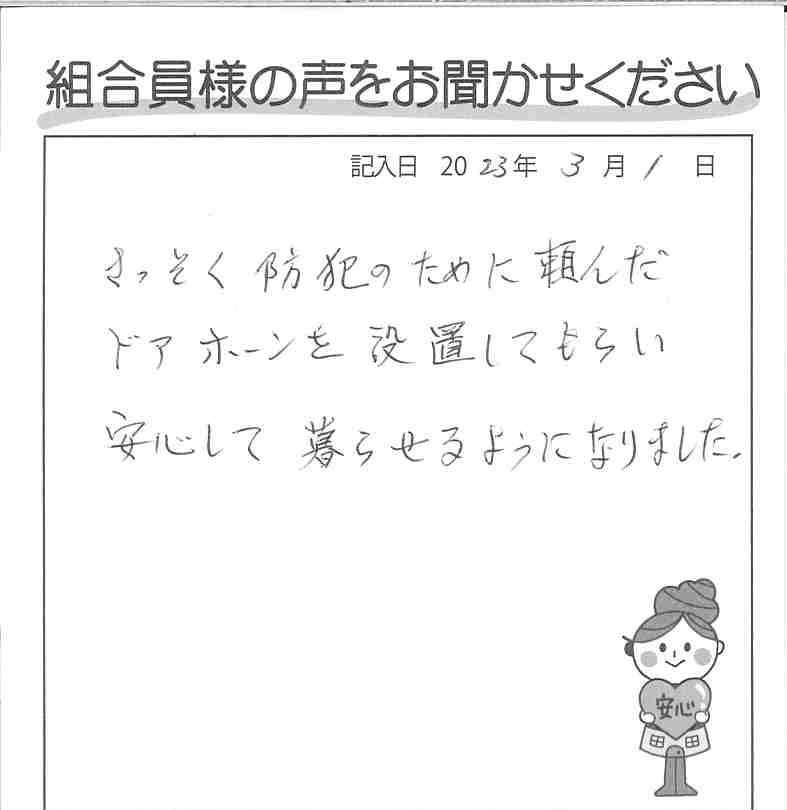 組合員様の声をお聞かせください
記入日 2023年 3月 1日
さっそく防犯のために頼んだ
ドアホーンを設置してもらい
安心して暮らせるようになりました。
安心